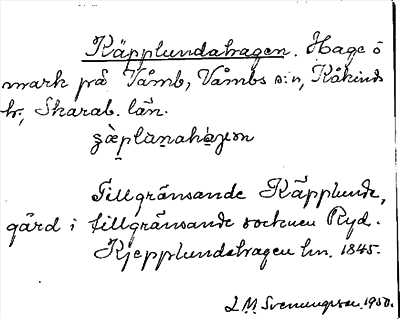 Käpplundahagen. Hage å
mark på Våmb, Våmbs s:n, Kåkinds
h:, Skarab. län.
Tillgränsande Käpplunda,
gård i tillgränsande socknen Ryd.
Kjepplundahagen lm. 1845.
L.M. Svenungsson. 1950.